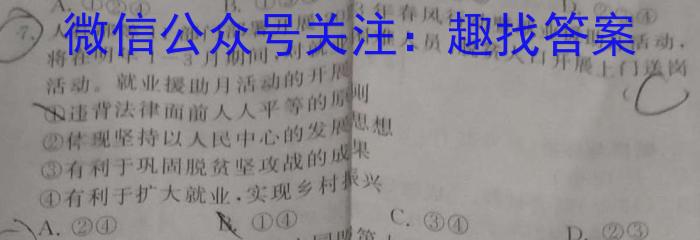 A. ①②
7.
微信公众号关注：趣找答案
3年春风行
活动，
活动。就业援助月活动的开展
开展上门送岗
①违背法律面前人人平等的原则
②体现坚持以人民中心的发展思想
③有利于巩固脱贫坚攻战的成果
④有利于扩大就业,实现乡村振兴
A. ②④ B. ①④ C. ③④ D. ②③